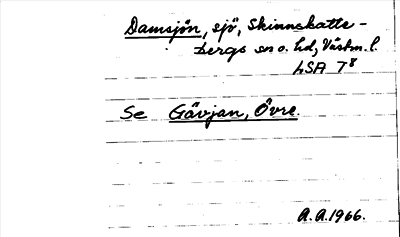 Damsjön, sjö, Skinnskatte-
bergs sn o. hd, Västm. l.
LSA T8
Se Gävjan, Övre.
A.A. 1966.